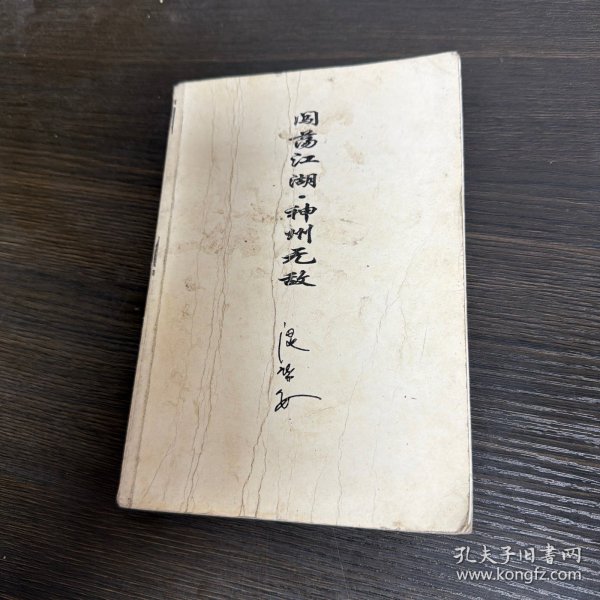 闯荡江湖·神州无敌
温瑞安
孔夫子旧书网
www.kongfz.com